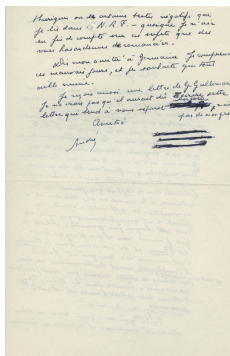 ou de certains textes négatifs que
je lis dans la N.R.F. – quoique je n'aie
en fin de compte sur ce sujet que des
vues hasardeuses de romancier.
Dis mon amitié à Germaine. Je comprends
ces mauvais jours, et je souhaite que tout
aille mieux.
Je reçois aussi une lettre de G. Gallimard
Je ne crois pas qu'il aurait dû cette
lettre qui tend à nous séparer
pas de
Amitié
André